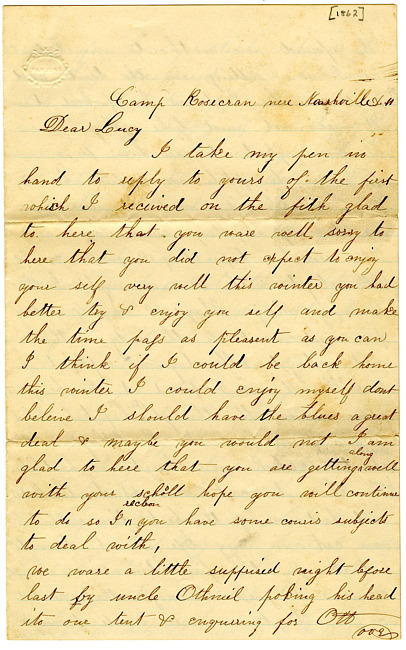 [1862]
Camp Rosecran nere Nashville
Dear Lucy
I take my pen in
hand to reply to yours of the first
which I recived on the fifth glad
to here that you ware well sorry to
here that you did not expect to enjoy
your self very well this winter you had
better try & enjoy you self and make
the time pass as pleasent as you can
I think if I could be back home
this winter I could enjoy myself dont
beleive I should have the blues a great
deal & maybe you would not I am
glad to here that you are getting along well
with your scholl hope you will continue
to do so I reckon you have some couris subjects
to deal with,
we ware a little supprised night before
last by uncle Othniel poking his head
ito our tent & enquiring for Ott